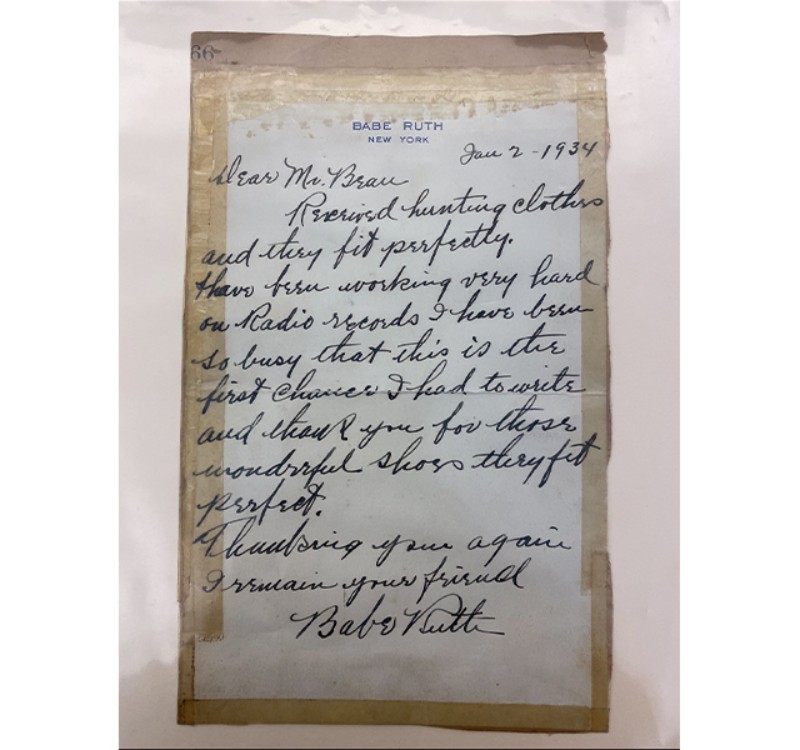 66
BABE RUTH
NEW YORK
Jan 2 - 1934
Dear Mr. Bean
Received hunting clothes
and they fit perfectly.
Have been working very hard
on Radio records I have been
so busy that this is the
first chance I had to write
and thank you for those
wonderful shoes they fit
perfect.
Thanking you again
I remain your friend
Babe Ruth